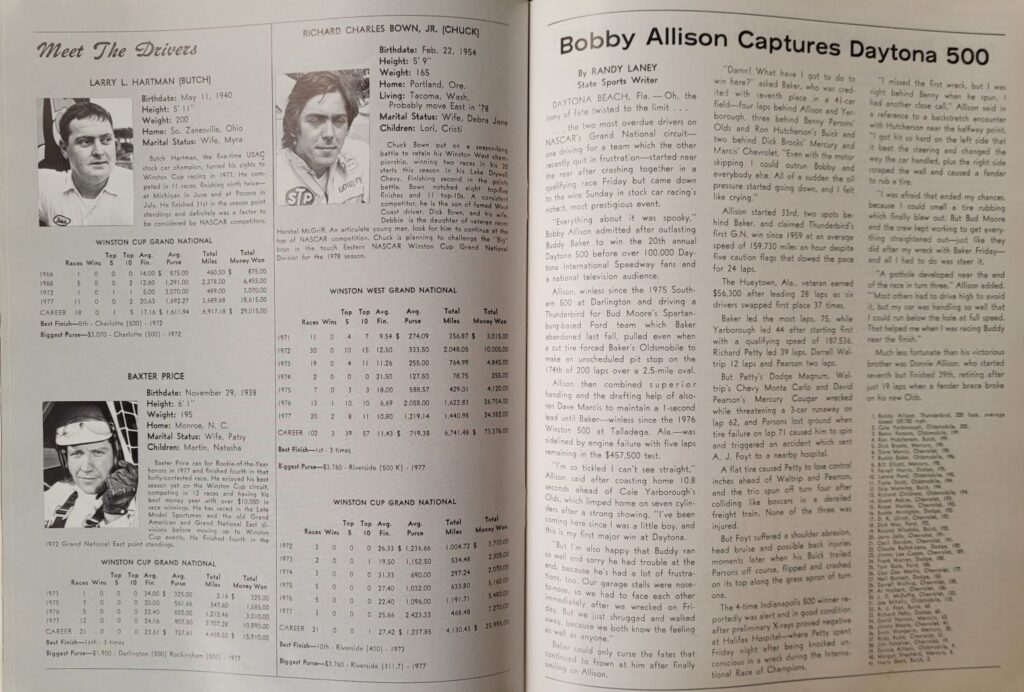 Meet The Drivers
LARRY L. HARTMAN (BUTCH)
Birthdate: May 11, 1940
Height: 5' 11"
Weight: 200
Home: So. Zanesville, Ohio
Marital Status: Wife, Myra
Butch Hartman, the five-time USAC
stock car champion, turned his sights to
Winston Cup racing in 1977. He com-
peted in 11 races, finishing ninth twice—
at Michigan in June and at Pocono in
July. He finished 31st in the season point
standings and definitely was a factor to
be considered by NASCAR competitors.
WINSTON CUP GRAND NATIONAL
Races Wins Top 5 Top 10 Avg. Fin. Avg. Purse Total Miles Total Money Won
1966 1 0 0 0 14.00 $ 875.00 460.50 $ 875.00
1968 5 0 0 2 12.60 1,291.00 2,278.00 6,455.00
1972 1 0 1 1 5.00 3,070.00 489.00 3,070.00
1977 11 0 0 2 20.63 1,692.27 3,689.68 18,615.00
CAREER 18 0 1 5 17.16 $ 1,611.94 6,917.18 $ 29,015.00
Best Finish—5th - Charlotte (500) - 1972
Biggest Purse—$3,070 - Charlotte (500) - 1972
BAXTER PRICE
Birthdate: November 29, 1938
Height: 6' 1"
Weight: 195
Home: Monroe, N. C.
Marital Status: Wife, Patsy
Children: Martin, Natasha
Baxter Price ran for Rookie-of-the-Year
honors in 1977 and finished fourth in that
hotly-contested race. He enjoyed his best
season yet on the Winston Cup circuit,
competing in 12 races and having his
best money year with over $10,000 in
race winnings. He has raced in the Late
Model Sportsman and the old Grand
American and Grand National East di-
visions before moving up to Winston
Cup events. He finished fourth in the
1972 Grand National East point standings.
WINSTON CUP GRAND NATIONAL
Races Wins Top 5 Top 10 Avg. Fin. Avg. Purse Total Miles Total Money Won
1973 1 0 0 0 34.00 $ 325.00 2.16 $ 325.00
1975 3 0 0 0 20.00 561.66 547.60 1,685.00
1976 5 0 0 0 22.40 602.00 1,212.46 3,010.00
1977 12 0 0 0 24.16 907.50 2,707.28 10,890.00
CAREER 21 0 0 0 23.61 $ 757.61 4,469.50 $ 15,910.00
Best Finish—16th - 3 times
Biggest Purse—$1,900 - Darlington (500) Rockingham (500) - 1977
RICHARD CHARLES BOWN, JR. (CHUCK)
Birthdate: Feb. 22, 1954
Height: 5' 9"
Weight: 165
Home: Portland, Ore.
Living: Tacoma, Wash.
Probably move East in '78
Marital Status: Wife, Debra Jane
Children: Lori, Cristi
STP
Chuck Bown put on a season-long
battle to retain his Winston West cham-
pionship, winning two races in his 20
starts this season in his Lake Drywall
Chevy. Finishing second in the points
battle, Bown notched eight top-five
finishes and 11 top-10s. A consistent
competitor, he is the son of famed West
Coast driver, Dick Bown, and his wife,
Debbie is the daughter of veteran racer
Hershel McGriff. An articulate young man, look for him to continue at the
top of NASCAR competition. Chuck is planning to challenge the "Big"
boys in the tough Eastern NASCAR Winston Cup Grand National
Division for the 1978 season.
WINSTON WEST GRAND NATIONAL
Races Wins Top 5 Top 10 Avg. Fin. Avg. Purse Total Miles Total Money Won
1971 11 0 4 7 9.54 $ 274.09 356.87 $ 3,015.00
1972 30 0 10 15 12.50 333.50 2,048.05 10,005.00
1973 19 0 4 11 11.26 255.00 764.99 4,845.00
1974 2 0 0 0 21.50 127.50 78.75 255.00
1975 7 0 3 3 18.00 588.57 429.01 4,120.00
1976 13 1 10 10 6.69 2,058.00 1,622.83 26,754.00
1977 20 2 8 11 10.80 1,219.14 1,440.98 24,382.00
CAREER 102 3 39 57 11.43 $ 719.38 6,741.48 $ 73,376.00
Best Finish—1st - 3 times
Biggest Purse—$3,760 - Riverside (500 K) - 1977
WINSTON CUP GRAND NATIONAL
Races Wins Top 5 Top 10 Avg. Fin. Avg. Purse Total Miles Total Money Won
1972 3 0 0 0 26.33 $ 1,236.66 1,004.72 $ 3,710.00
1973 2 0 0 1 19.50 1,152.50 534.48 2,305.00
1974 3 0 0 0 31.33 690.00 297.24 2,070.00
1975 5 0 0 0 27.40 1,032.00 633.80 5,160.00
1976 5 0 0 0 22.40 1,096.00 1,191.71 5,480.00
1977 3 0 0 0 25.66 2,423.33 468.48 7,270.00
CAREER 21 0 0 1 27.42 $ 1,237.85 4,130.43 $ 25,995.00
Best Finish—10th - Riverside (400) - 1973
Biggest Purse—$3,760 - Riverside (311.7) - 1977
Bobby Allison Captures Daytona 500
By RANDY LANEY
State Sports Writer
DAYTONA BEACH, Fla. — Oh, the
irony of fate twisted to the limit . . .
. . . the two most overdue drivers on
NASCAR's Grand National circuit—
one driving for a team which the other
recently quit in frustration—started near
the rear after crashing together in a
qualifying race Friday but came down
to the wire Sunday in stock car racing's
richest, most prestigious event.
"Everything about it was spooky,"
Bobby Allison admitted after outlasting
Buddy Baker to win the 20th annual
Daytona 500 before over 100,000 Day-
tona International Speedway fans and
a national television audience.
Allison, winless since the 1975 South-
ern 500 at Darlington and driving a
Thunderbird for Bud Moore's Spartan-
burg-based Ford team which Baker
abandoned last fall, pulled even when
a cut tire forced Baker's Oldsmobile to
make an unscheduled pit stop on the
174th of 200 laps over a 2.5-mile oval.
Allison then combined superior
handling and the drafting help of also-
ran Dave Marcis to maintain a 1-second
lead until Baker—winless since the 1976
Winston 500 at Talladega, Ala.—was
sidelined by engine failure with five laps
remaining in the $457,500 test.
"I'm so tickled I can't see straight,"
Allison said after coasting home 10.8
seconds ahead of Cale Yarborough's
Olds, which limped home on seven cylin-
ders after a strong showing. "I've been
coming here since I was a little boy, and
this is my first major win at Daytona.
"But I'm also happy that Buddy ran
so well and sorry he had trouble at the
end, because he's had a lot of frustra-
tions, too. Our garage stalls were nose-
to-nose, so we had to face each other
immediately after we wrecked on Fri-
day. But we just shrugged and walked
away, because we both know the feeling
as well as anyone."
Baker could only curse the fates that
continued to frown at him after finally
smiling on Allison.
"Damn! What have I got to do to
win here?" asked Baker, who was cred-
ited with seventh place in a 41-car
field—four laps behind Allison and Yar-
borough, three behind Benny Parsons'
Olds and Ron Hutcherson's Buick and
two behind Dick Brooks' Mercury and
Marcis' Chevrolet. "Even with the motor
skipping I could outrun Bobby and
everybody else. All of a sudden the oil
pressure started going down, and I felt
like crying."
Allison started 33rd, two spots be-
hind Baker, and claimed Thunderbird's
first G.N. win since 1959 at an average
speed of 159.730 miles an hour despite
five caution flags that slowed the pace
for 24 laps.
The Hueytown, Ala., veteran earned
$56,300 after leading 28 laps as six
drivers swapped first place 27 times.
Baker led the most laps, 75, while
Yarborough led 44 after starting first
with a qualifying speed of 187.536.
Richard Petty led 39 laps, Darrell Wal-
trip 12 laps and Pearson two laps.
But Petty's Dodge Magnum, Wal-
trip's Chevy Monte Carlo and David
Pearson's Mercury Cougar wrecked
while threatening a 3-car runaway on
lap 62, and Parsons lost ground when
tire failure on lap 71 caused him to spin
and triggered an accident which sent
A. J. Foyt to a nearby hospital.
A flat tire caused Petty to lose control
inches ahead of Waltrip and Pearson,
and the trio spun off turn four after
colliding like boxcars in a derailed
freight train. None of the three was
injured.
But Foyt suffered a shoulder abrasion,
head bruise and possible back injuries
moments later when his Buick trailed
Parsons off course, flipped and crashed
on its top along the grass apron of turn
one.
The 4-time Indianapolis 500 winner re-
portedly was alert and in good condition
after preliminary X-rays proved negative
at Halifax Hospital—where Petty spent
Friday night after being knocked un-
conscious in a wreck during the Interna-
tional Race of Champions.
"I missed the first wreck, but I was
right behind Benny when he spun. I
had another close call," Allison said in
reference to a backstretch encounter
with Hutcherson near the halfway point.
"I got hit so hard on the left side that
it beat the steering and changed the
way the car handled, plus the right side
scraped the wall and caused a fender
to rub a tire.
"I was afraid that ended my chances,
because I could smell a tire rubbing
which finally blew out. But Bud Moore
and the crew kept working to get every-
thing straightened out—just like they
did after my wreck with Baker Friday—
and all I had to do was steer it.
"A pothole developed near the end
of the race in turn three," Allison added.
"Most others had to drive high to avoid
it, but my car was handling so well that
I could run below the hole at full speed.
That helped me when I was racing Buddy
near the finish."
Much less fortunate than his victorious
brother was Donnie Allison, who started
seventh but finished 39th, retiring after
just 19 laps when a fender brace broke
on his new Olds.
1. Bobby Allison, Thunderbird, 200 laps, average
speed 159.730 mph.
2. Cale Yarborough, Oldsmobile, 200.
3. Benny Parsons, Oldsmobile, 199.
4. Ron Hutcherson, Buick, 199.
5. Dick Brooks, Mercury, 198.
6. Dave Marcis, Chevrolet, 198.
7. Buddy Baker, Oldsmobile, 196.
8. Bill Elliott, Mercury, 195.